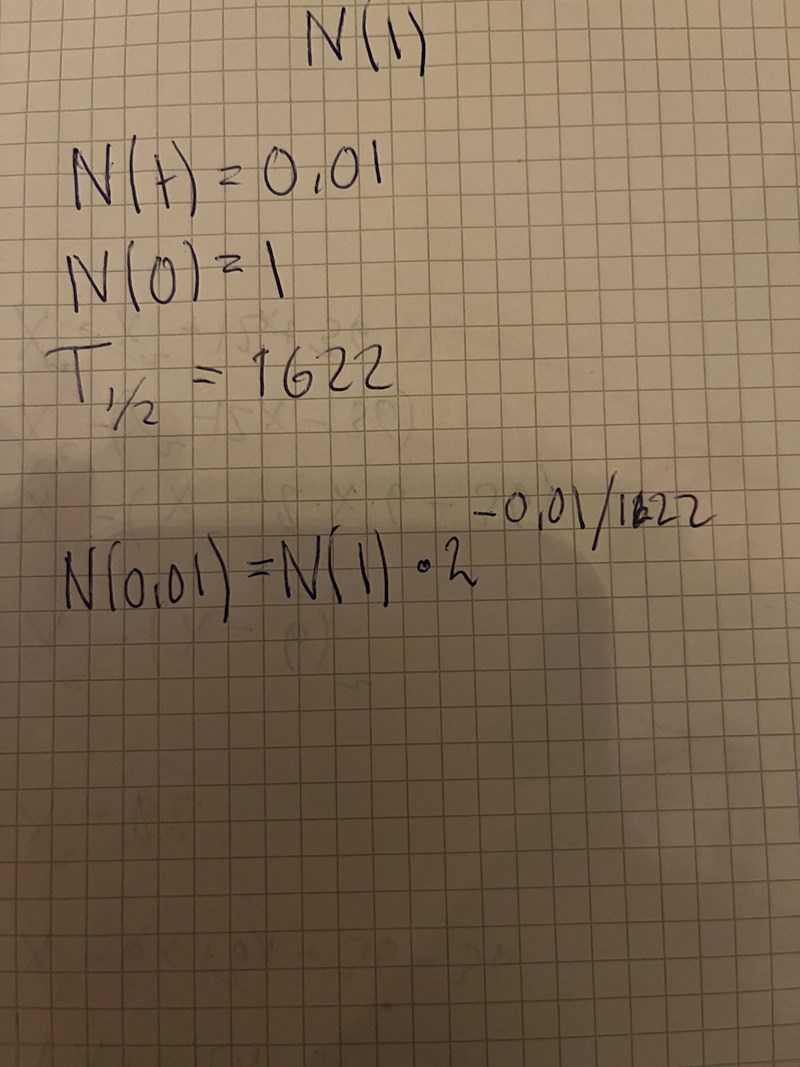 N(1)
N(t) = 0,01
N(0) = 1
T1/2 = 1622
N(0,01) = N(1) • 2^-0,01/1622